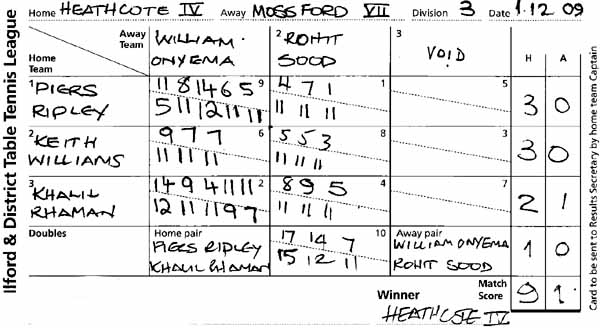 Ilford & District Table Tennis League
Home HEATHCOTE IV Away MOSSFORD VII Division 3 Date 1.12 09
Away Team
Home Team
WILLIAM ONYEMA
2 ROHIT SOOD
3 VOID
H A
1 PIERS RIPLEY
9
11 8 14 6 5
5 11 12 11 11
1
4 7 1
11 11 11
5
3 0
2 KEITH WILLIAMS
6
9 7 7
11 11 11
8
5 5 3
11 11 11
3
3 0
3 KHALIL RHAMAN
2
14 9 4 11 11
12 11 11 9 7
4
8 9 5
11 11 11
7
2 1
Doubles
Home pair
PIERS RIPLEY
KHALIL RHAMAN
10
17 14 7
15 12 11
Away pair
WILLIAM ONYEMA
ROHIT SOOD
1 0
Winner HEATHCOTE IV
Match Score
9 1
Card to be sent to Results Secretary by home team Captain